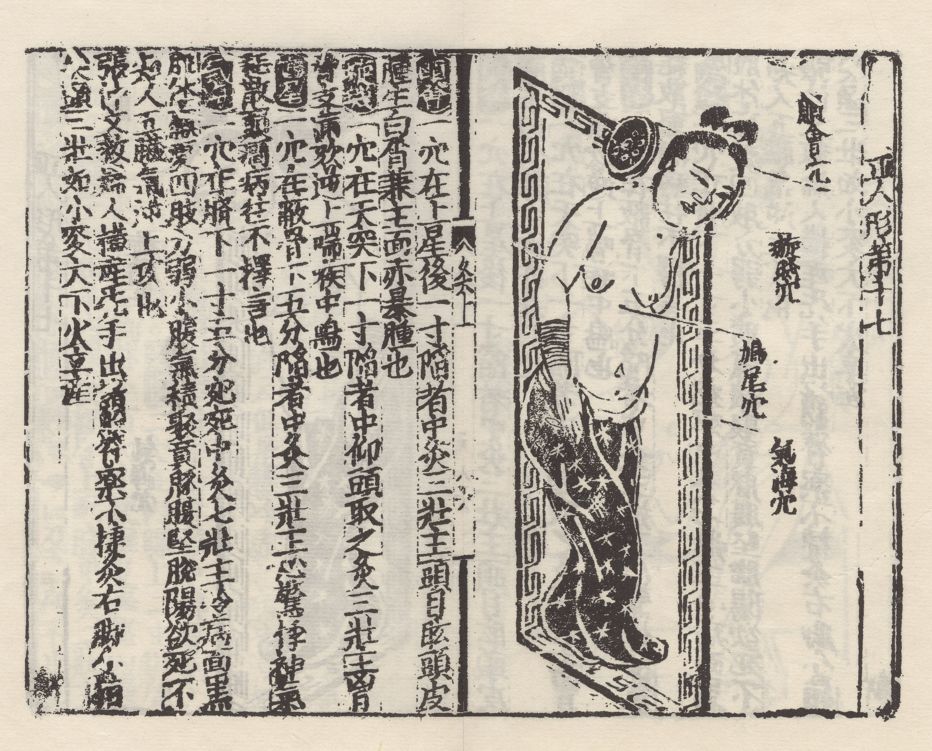 正人形第十七
顖會穴
璇璣穴
鳩尾穴
氣海穴
顖會一穴在上星後一寸陷者中灸三壯主頭目眩頭皮
腫生白屑兼主面赤暴腫也
一穴在天突下一寸陷者中仰頭取之灸三壯主胷
脅支滿欬逆上喘喉中鳴也
一穴在蔽骨下五分陷者中灸三壯主心驚悸神氣
耗散癲癎病狂不擇言也
一穴在臍下一寸五分宛宛中灸七壯主冷病面黑
肌体羸瘦四肢力弱小腹氣積聚賁豚腹堅脫陽欲死不
知人五臟氣逆上攻也
張仲文救婦人橫產先手出諸般符藥不捷灸右脚小指
尖頭三壯如小麥大下火立產